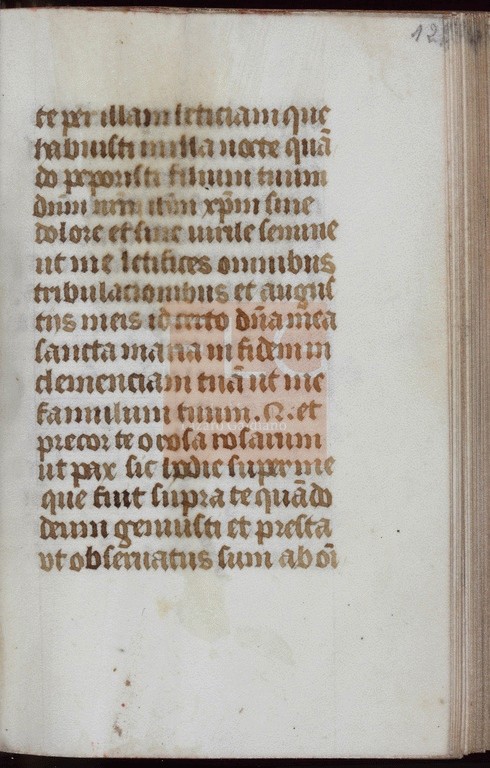 12
te per illam leticiam que
habuisti in illa nocte quā
do peperisti filium tuum
dūm nrm ihm xp̄m sine
dolore et sine uirile semine
ut me letifices omnibus
tribulacionibus et angus
tiis meis id certo dn̄a mea
sancta maria in fidem in
clemenciam tuā ut me
famulum tuum .N. et
precor te o rosa rosarum
ut pax sic hodie super me
que fuit supra te quādo
deum genuisti et presta
vt obseruatus sum ab oī